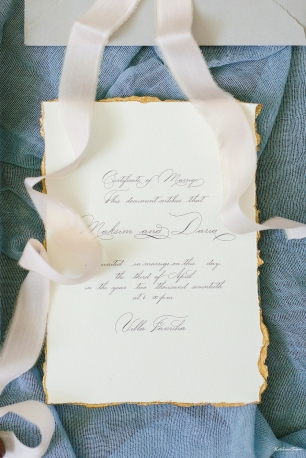 Certificate of Marriage
This document witnes that
Maksim and Daria
united in marriage on this day
the third of April
in the year two thousand seventeeth
at 6 p.m.
Villa